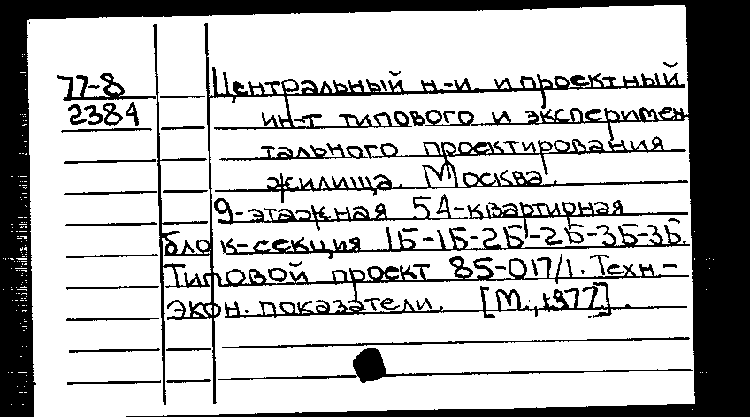 77-8 Центральный н.-и. и проектный
2384 ин-т типового и эксперимен
тального проектирования
жилища. Москва.
9-этажная 54-квартирная
блок-секция 1Б-1Б-2Б-2Б-3Б-3Б.
Типовой проект 85-017/1. Техн.-
экон. показатели. [М., 1977].